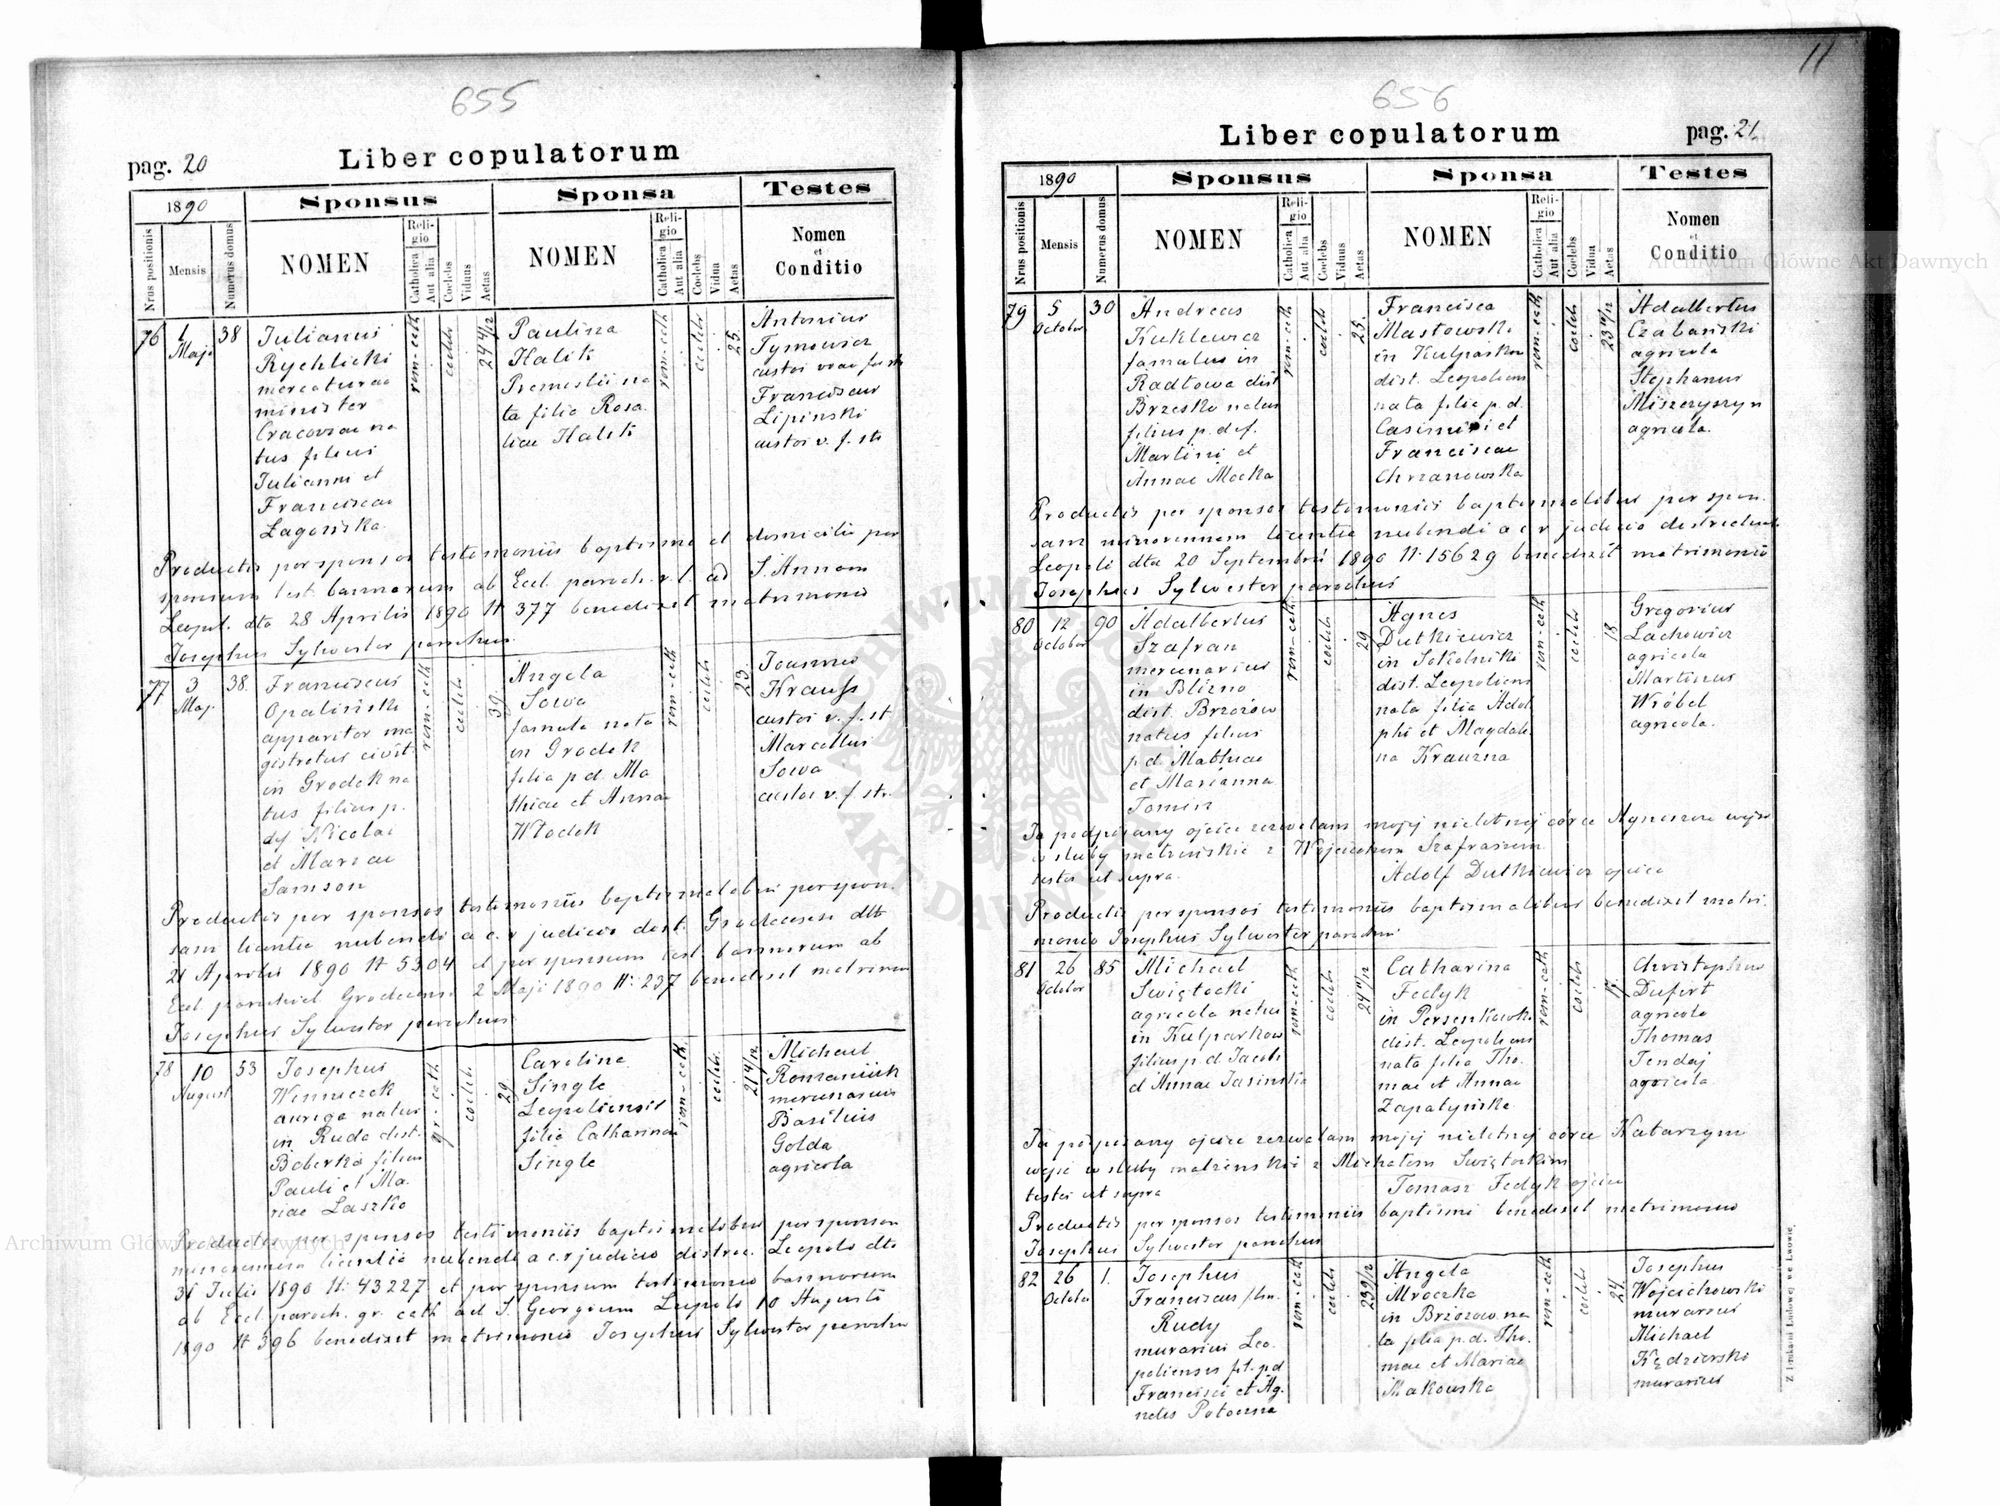 655
pag. 20
Liber copulatorum
1890
Sponsus
Sponsa
Testes
Nrus positionis
Mensis
Numerus domus
NOMEN
Religio
Catholica
Aut alia
Coelebs
Viduus
Aetas
NOMEN
Religio
Catholica
Aut alia
Coelebs
Vidua
Aetas
Nomen
et
Conditio
76
Maji
38
Julianus
Rychlicki
mercaturae
minister
Cracoviae na
tus filius
Julianni et
Franciscae
Łagońska
rom-cath
coeleb
24 4/12
Paulina
Halik
Premisliina
ta filia Rosa
liae Halik
rom-cath
coeleb
25.
Antonius
Tymowicz
custos
Franciscus
Lipinski
custos v. f. st.
Productis per sponsos testimoniis baptismi et domicilii per
sponsum test. bannorum ab Eccl. paroch. r. l. ad S. Annam
Leopol. dto 28 Aprilis 1890 N 377 benedixit matrimonio
Josephus Sylwester parochus.
77
3
Maj.
38.
Franciscus
Opaliński
apparitor ma
gistratus civit
in Grodek na
tus filius p.
df Nicolai
et Mariae
Samson
rom-cath
coeleb
39
Angela
Sowa
famula nata
in Grodek
filia p d. Ma
thiae et Annae
Włodek
rom-cath
coeleb
23.
Joannes
Krauss
custos v. f. st
Marcellus
Sowa
custos v. f. str.
Productis per sponsos testimoniis baptismalibus per spon.
sam licentia nubendi a c. r judicio dist. Grodecensi dto
21 Aprilis 1890 N 5304 et per sponsum test. bannorum ab
Eccl parochial Grodecensi 2 Maji 1890 N: 237 benedixit matrimon
Josephus Sylwester parochus
78
10
August
53
Josephus
Winniczek
auriga natus
in Ruda dist.
Boberka filius
Pauli et Ma.
riae Laszko
gr. cath
coeleb
29
Carolina
Single
Leopoliensis
filia Catharinae
Single
rom-cath
coeleb.
21 4/12
Michael
Romaniuk
mercenarius
Basilius
Golda
agricola
Productis per sponsos testimoniis baptismalibus per sponsam
minorennem licentia nubendi a c. r judicio district. Leopoli dto
31 Julii 1890 N: 43227 et per sponsum testimonio bannorum
ab Eccl. paroch. gr. cath ad S. Georgium Leopoli 10 Augusti
1890 N 396 benedixit matrimonio Josephus Sylwester parochus
11
656
Liber copulatorum
pag. 21.
1890
Sponsus
Sponsa
Testes
Nrus positionis
Mensis
Numerus domus
NOMEN
Religio
Catholica
Aut alia
Coelebs
Viduus
Aetas
NOMEN
Religio
Catholica
Aut alia
Coelebs
Vidua
Aetas
Nomen
et
Conditio
79
5
October
30
Andreas
Kuklewicz
famulus in
Radłowa dist
Brzesko natus
filius p. def.
Martini et
Annae Mocka
rom-cath
coeleb
25.
Francisca
Masłowska
in Kulparkow
dist. Leopoliens
nata filia p. d.
Casimiri et
Franciscae
Chrzanowska
rom-cath
coeleb
Adalbertus
Czabański
agricola
Stephanus
Miszczyszyn
agricola.
Productis per sponsos testimoniis baptismalibus per spon.
sam minorennem licentia nubendi a c r judicio districtual
Leopoli dto 20 Septembri 1890 N: 15629 benedixit matrimonio
Josephus Sylwester parochus
80
12
October
90
Adalbertus
Szafran
mercenarius
in Blizno
dist. Brzozów
natus filius
p. d. Mathiae
et Marianna
Tomin
rom-cath.
coeleb
29
Agnes
Dutkiewicz
in Sokolniki
dist. Leopoliens
nata filia Adol
phi et Magdale
na Krauzna
rom-cath
coeleb
18
Gregorius
Lachowicz
agricola
Martinus
Wróbel
agricola.
Ja podpisany ojciec zezwalam mojej nieletniej córce Agnieszce wejść
w śluby małżeńskie z Wojciechem Szafranem
testes ut supra.
Adolf Dutkiewicz ojciec
Productis per sponsos testimoniis baptismalibus benedixit matri.
monio Josephus Sylwester parochus
81
26
October
85
Michael
Swiętocki
agricola natus
in Kulparkow
filius p. d Jacob
et Annae Jasinska
rom-cath
coeleb
24 11/12
Catharina
Fedyk
in Persenkowka
dist. Leopoliens
nata filia Tho.
mae et Annae
Zapatyńska
rom-cath
coeleb
17.
Christophus
Dufert
agricola
Thomas
Tendaj
agricola
Ja podpisany ojciec zezwalam mojej nieletniej córce Katarzynie
wejść w śluby małżeńskie z Michałem Swiętockim
testes ut supra
Tomasz Fedyk ojciec
Productis per sponsos testimoniis baptismi benedixit matrimonio
Josephus Sylwester parochus
82
26
October
1.
Josephus
Franciscus
Rudy
murarius Leo.
poliensis fil. p d
Francisci et Ag.
netis Potoczna
rom-cath
coeleb
23 9/12
Angela
Mroczka
in Brzozow na
ta filia p. d. Tho.
mae et Mariae
Makowska
rom-cath
coeleb
24
Josephus
Wojciechowski
murarius
Michael
Kędzierski
murarius
Z Drukarni Ludowej we Lwowie.
Archiwum Główne Akt Dawnych
Archiwum Główne Akt Dawnych
ARCHIWUM GŁÓWNE AKT DAWNYCH